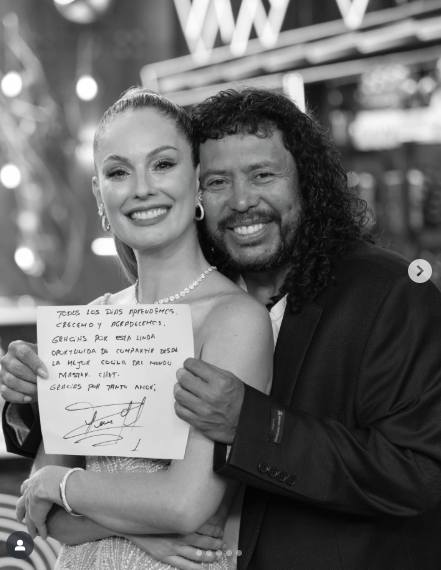 TODOS LOS DIAS APRENDEMOS,
CRECEMOS Y AGRADECEMOS.
GRACIAS POR ESTA LINDA
OPORTUNIDAD DE COMPARTIR DESDE
LA MEJOR COCINA DEL MUNDO
MASTER CHEF.
GRACIAS POR TANTO AMOR,
1